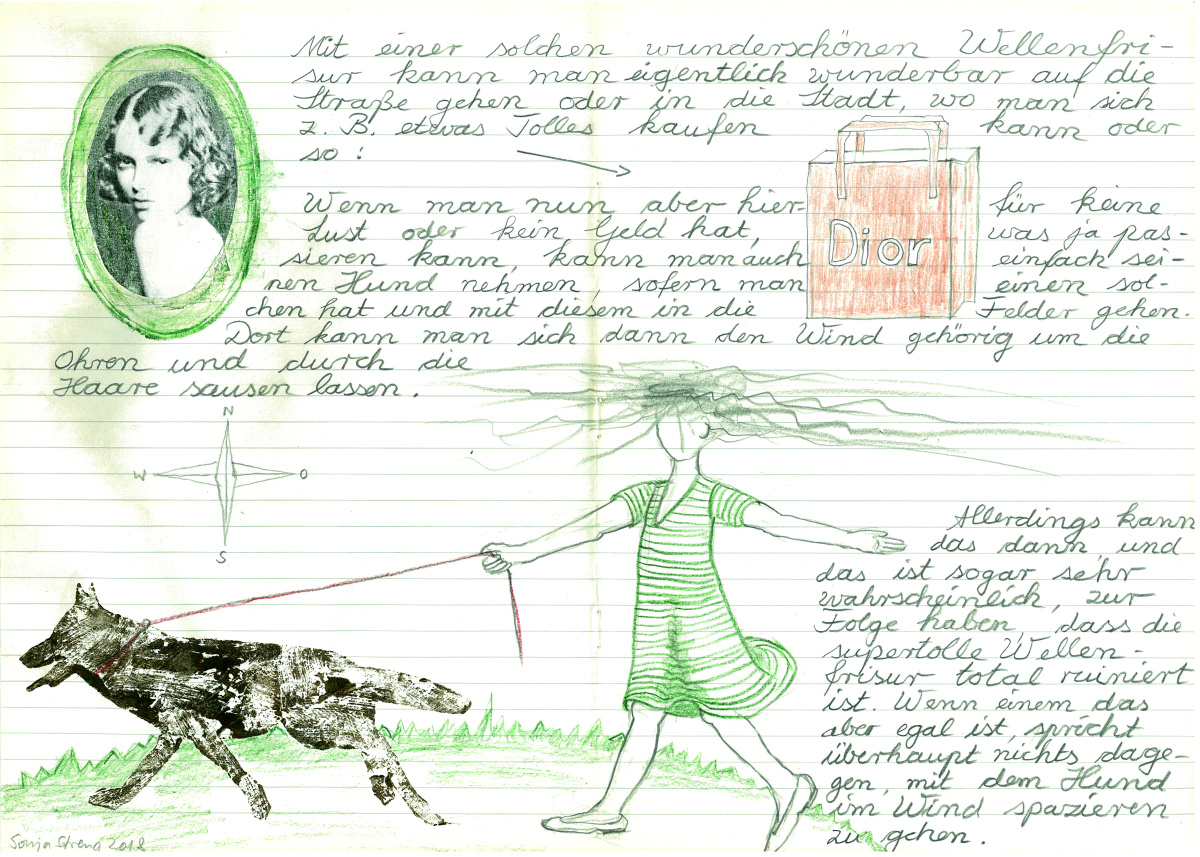 Mit einer solchen wunderschönen Wellenfri-
sur kann man eigentlich wunderbar auf die
Straße gehen oder in die Stadt, wo man sich
z. B. etwas Tolles kaufen kann oder
so :
Wenn man nun aber hier- für keine
Lust oder kein Geld hat, was ja pas-
sieren kann, kann man auch einfach sei-
nen Hund nehmen, sofern man einen sol-
chen hat und mit diesem in die Felder gehen.
Dort kann man sich dann den Wind gehörig um die
Ohren und durch die
Haare sausen lassen.
Dior
N
W O
S
Allerdings kann
das dann, und
das ist sogar sehr
wahrscheinlich, zur
Folge haben, dass die
supertolle Wellen-
frisur total ruiniert
ist. Wenn einem das
aber egal ist, spricht
überhaupt nichts dage-
gen, mit dem Hund
im Wind spazieren
zu gehen.
Sonja Streng 2018